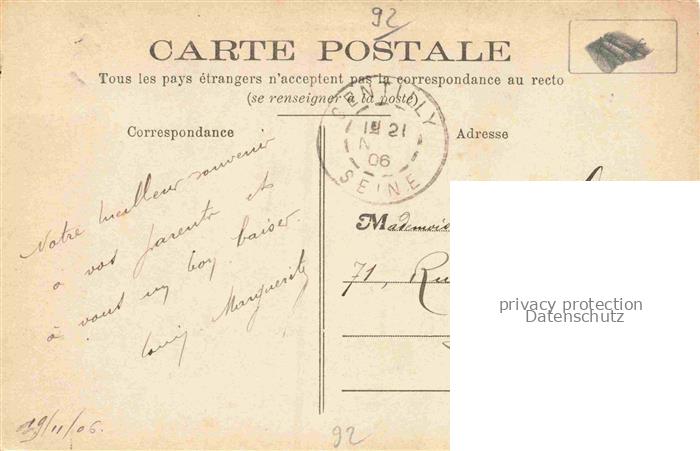 92
CARTE POSTALE
Tous les pays étrangers n'acceptent pas la correspondance au recto
(se renseigner à la poste)
GENTILLY
1E 21
N
06
SEINE
Correspondance
Adresse
Notre meilleur souvenir
à vos parents et
à vous un bon baiser.
Marguerite
Mademois
71, Ru
privacy protection
Datenschutz
29/11/06.
92